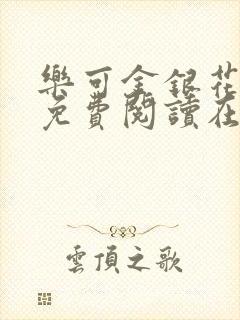 樂可金銀花
免費閱讀在
雲頂之歌